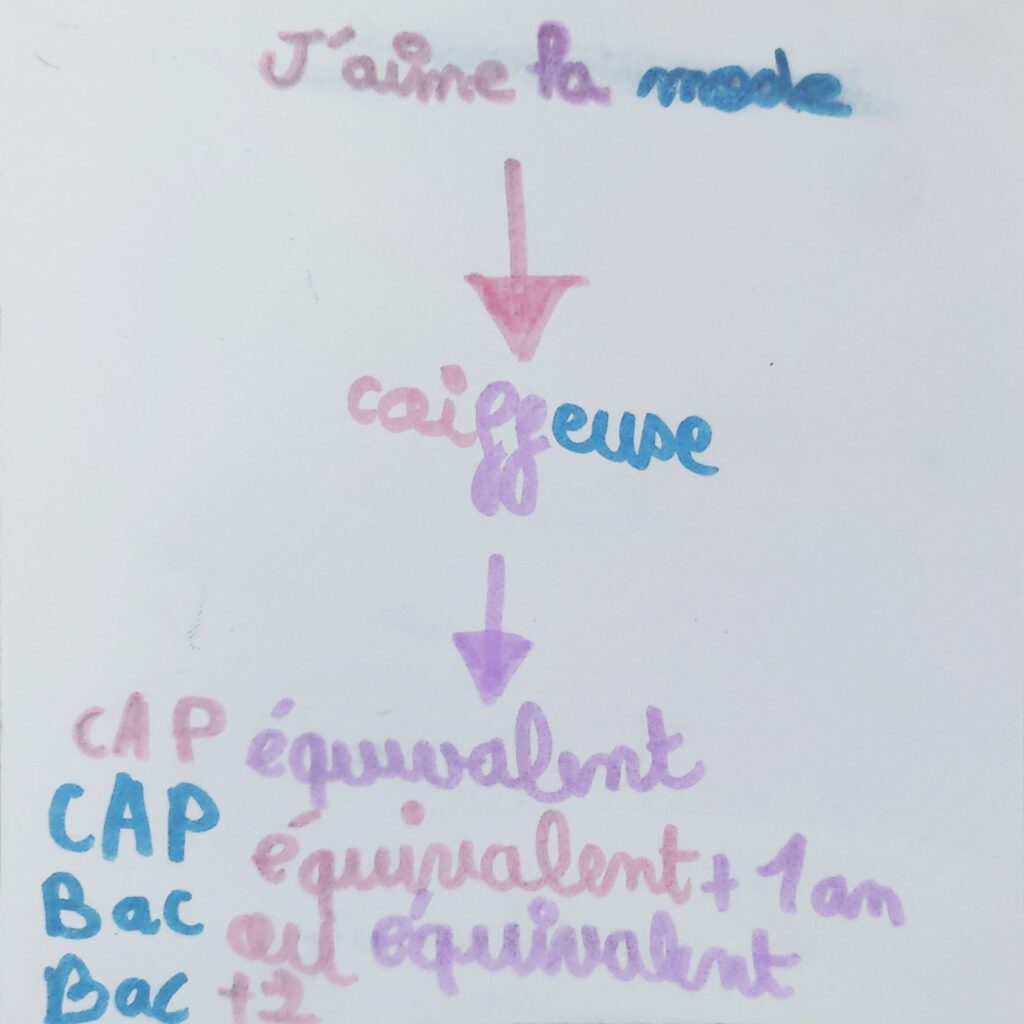 J'aime la mode
coiffeuse
CAP équivalent
CAP équivalent + 1 an
Bac ou équivalent
Bac +2